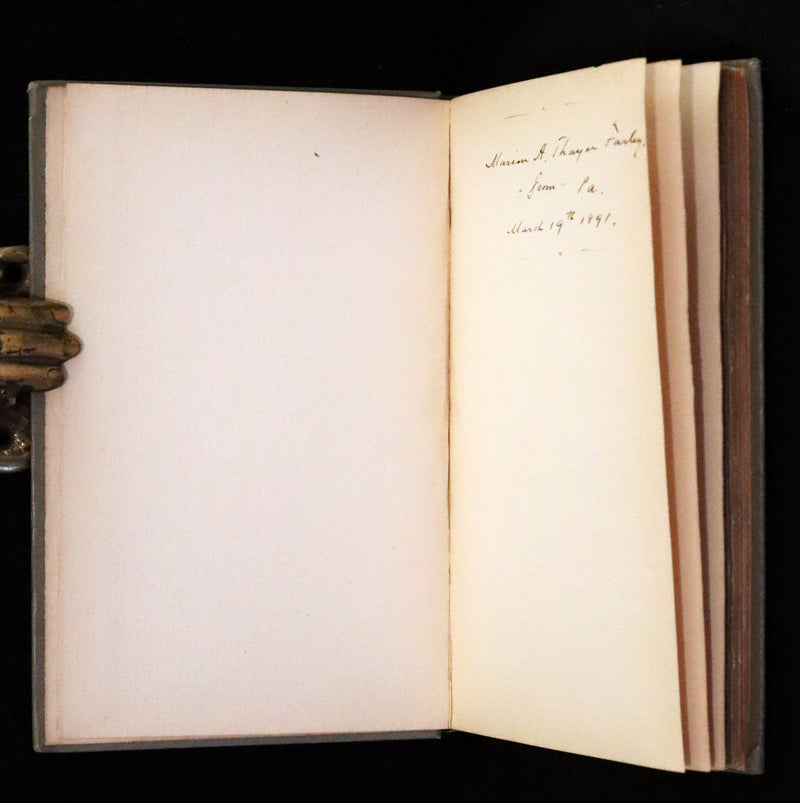 Marion A. Thayer Farley,
- from - Pa.
March 19th 1891.